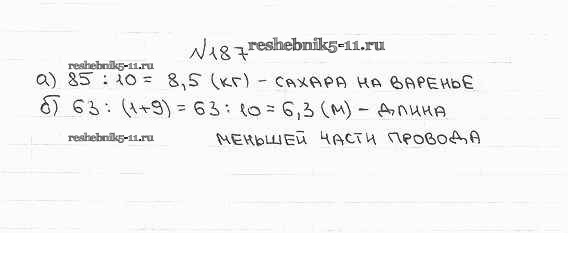 №187 reshebnik5-11.ru
reshebnik5-11.ru
а) 85 : 10 = 8,5 (кг) – сахара на варенье
б) 63 : (1+9) = 63 : 10 = 6,3 (м) – длина
reshebnik5-11.ru меньшей части провода